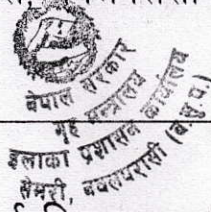 नेपाल सरकार
गृह मन्त्रालय
इलाका प्रशासन कार्यालय
सेमरी, नवलपरासी (ब.सु.प.)